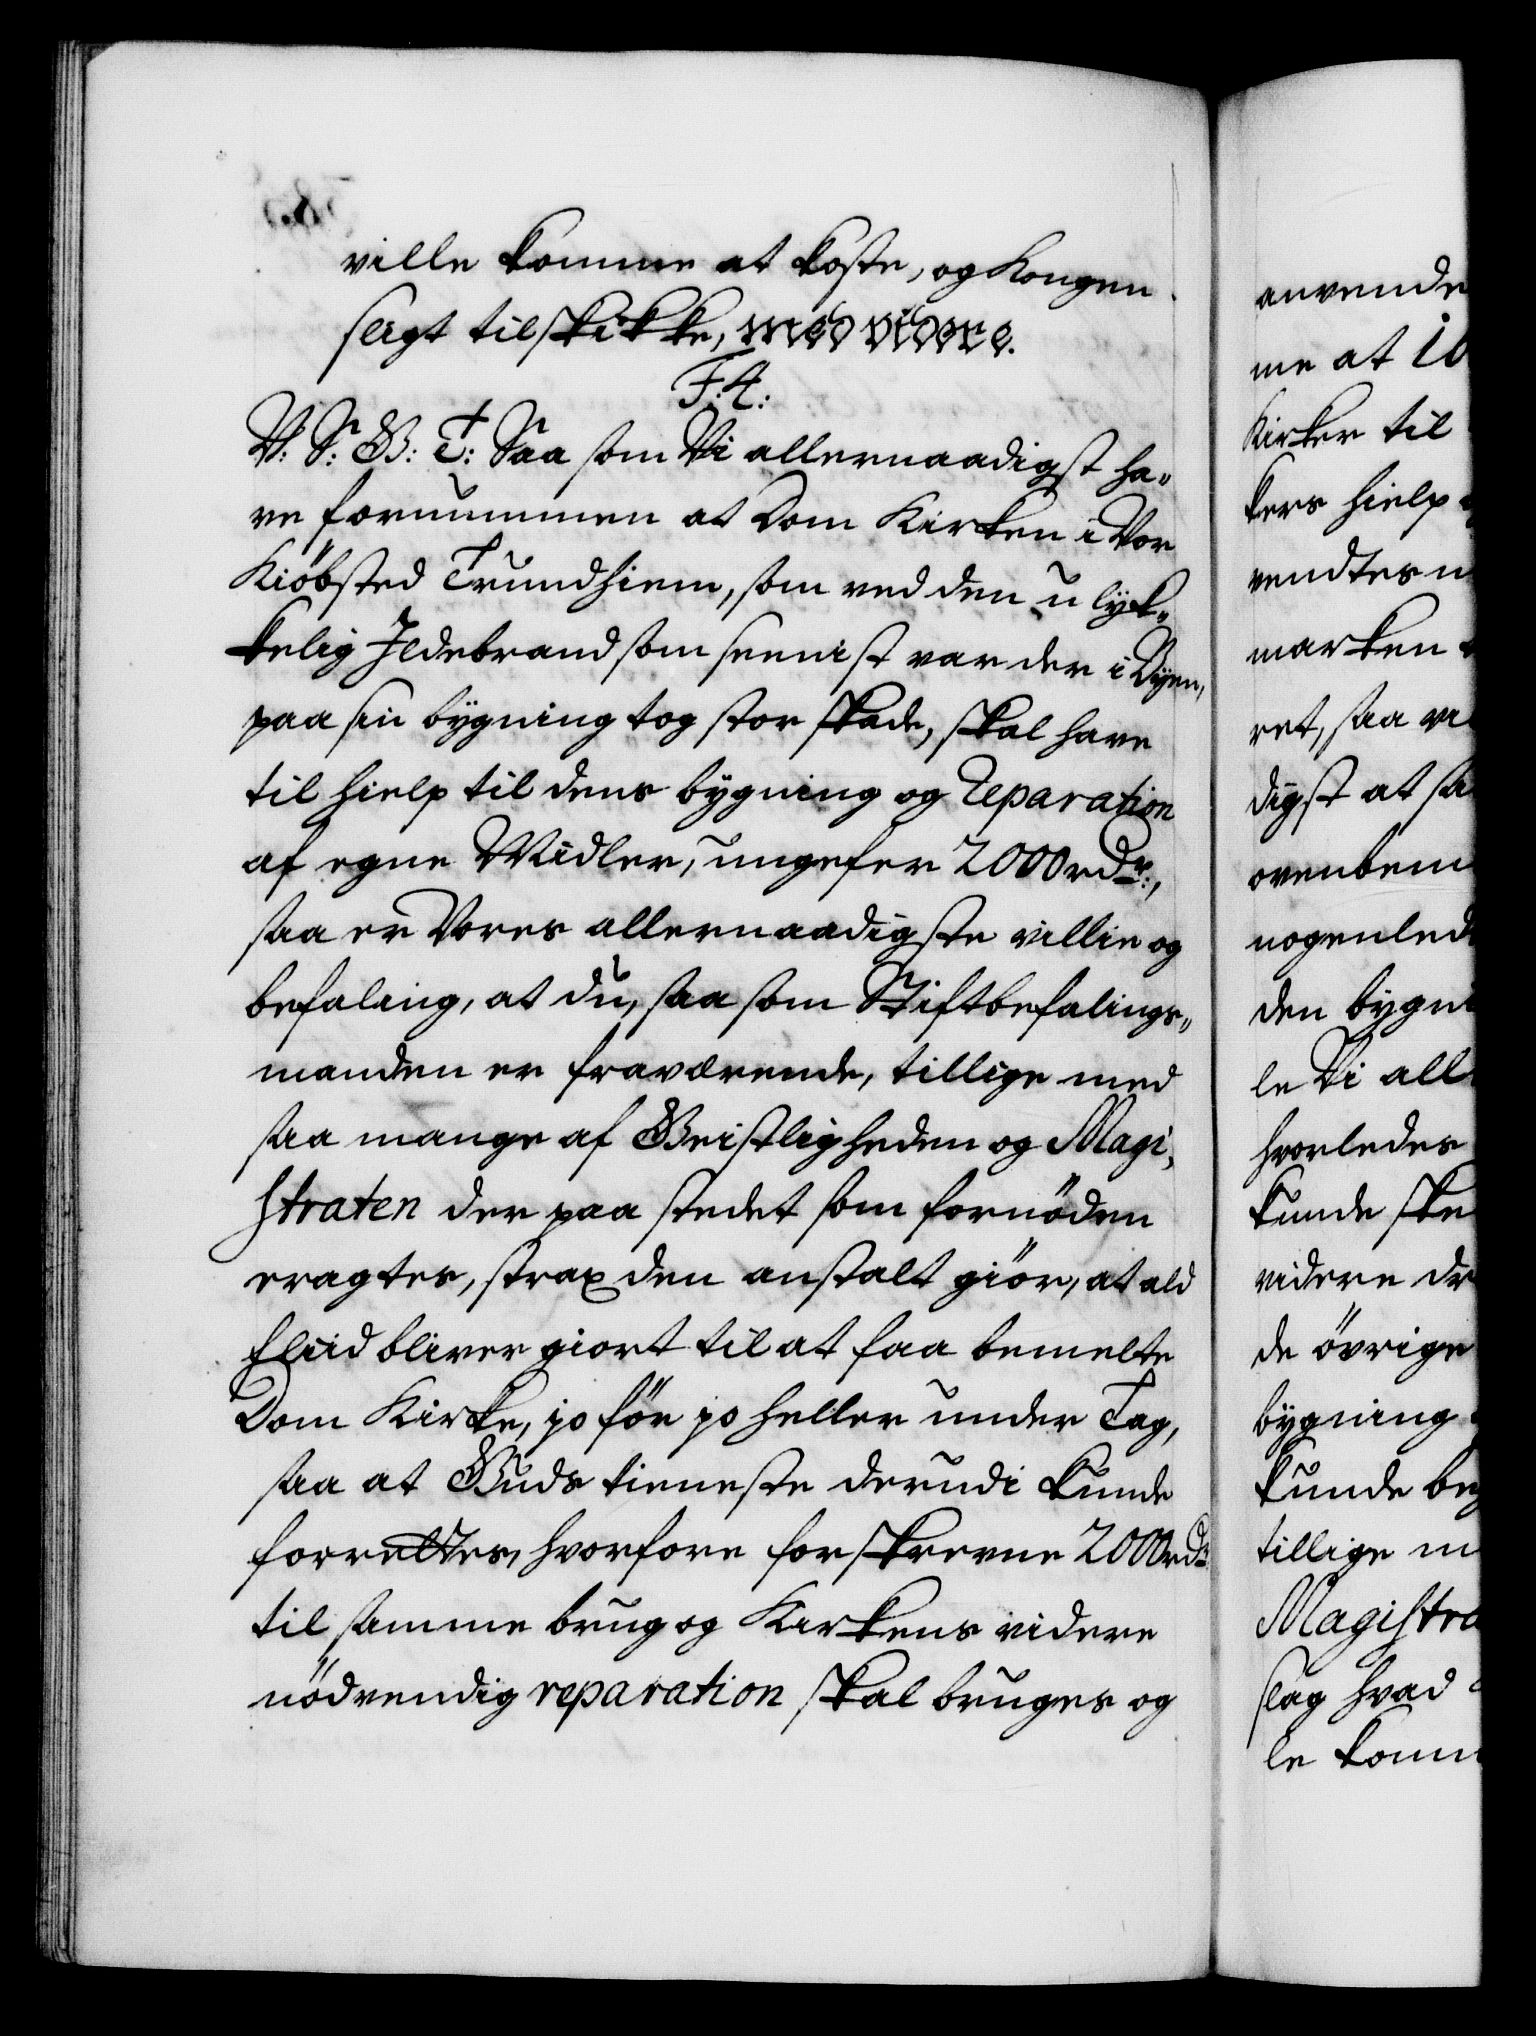 ville komme at koste, og Kongen
sligt tilskikke, med videre.
F. 4.
V: S: G: T: Saa som Vi allernaadigst ha-
ve fornummen at Dom Kirken i Vor
Kiöbsted Trundhiem, som ved den u lyk-
kelig Ildebrand som seenist var der i Byen,
paa sin bygning tog stor skade, skal have
til hielp til dens bygning og Reparation
af egne Midler, ungefer 2000 rdr:,
saa er Vores allernaadigste villie og
befaling, at du, saa som Stiftbefalings-
manden er fraværende, tillige med
saa mange af Geistligheden og Magi-
straten der paa stedet som fornöden
eragtes, strax den anstalt giör, at ald
fliid bliver giort til at faa bemelte
Dom Kirke, jo för jo heller under Tag,
saa at Guds tieneste derudi kunde
forrettes, hvorfore forskrevne 2000 rdr
til samme brug og Kirkens videre
nödvendig reparation skal bruges og
anvende
me at 10
Kirker til
kers hielp
vendtes
marken
ret, saa vi
digst at
ovenbem
nogenled
den bygni
le Vi all
hvorledes
kunde ske
videre
de övrige
bygning
kunde be
tillige m
Magistra
slag hvad
le komm